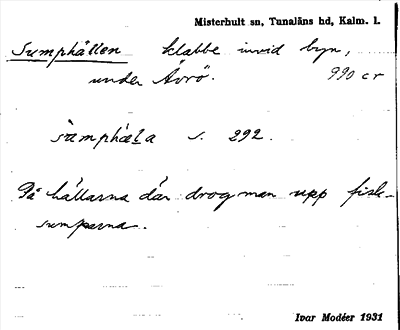 Misterhult sn, Tunaläns hd, Kalm. l.
Sumphällen klabbe invid byn,
under Ävrö. 990 cr
sùmphæ̀ḷa s. 292.
På hällarna där drog man upp fisk-
sumparna.
Ivar Modéer 1931